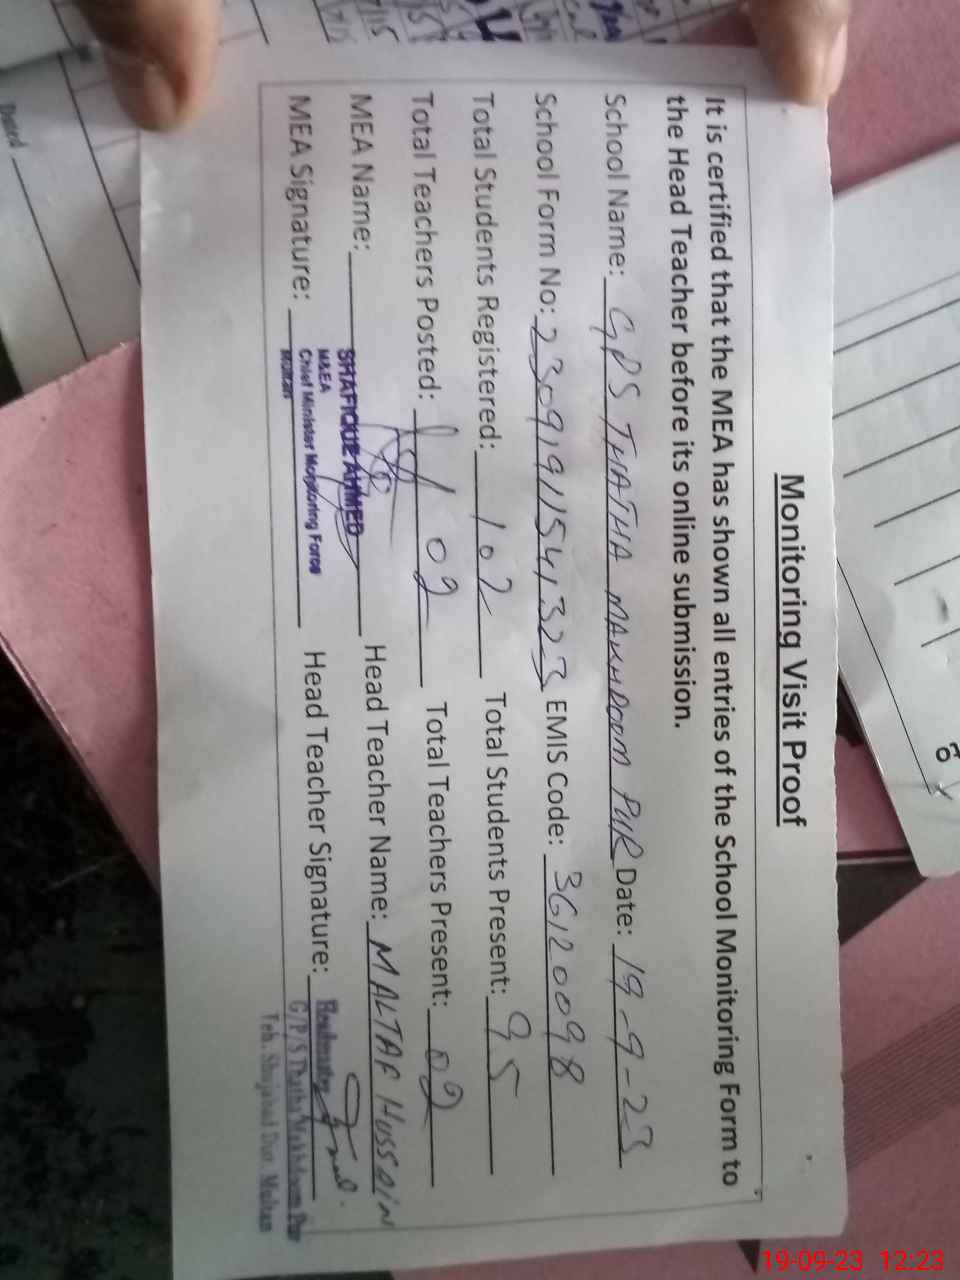 Monitoring Visit Proof
It is certified that the MEA has shown all entries of the School Monitoring Form to
the Head Teacher before its online submission.
School Name: GPS THATHA MAKHDOOM PUR Date: 19-9-23
School Form No: 23091911541323 EMIS Code: 36120098
Total Students Registered: 102 Total Students Present: 95
Total Teachers Posted: 02 Total Teachers Present: 02
MEA Name: SHAFIQUE AHMED Head Teacher Name: M ALTAF HUSSAIN
M&EA
MEA Signature: Chief Minister Monitoring Force Head Teacher Signature: Headmaster
Multan
G/P/S Thatha Makhdoom Pur
Teh. Shujabad Distt. Multan
Dated
19-09-23 12:23